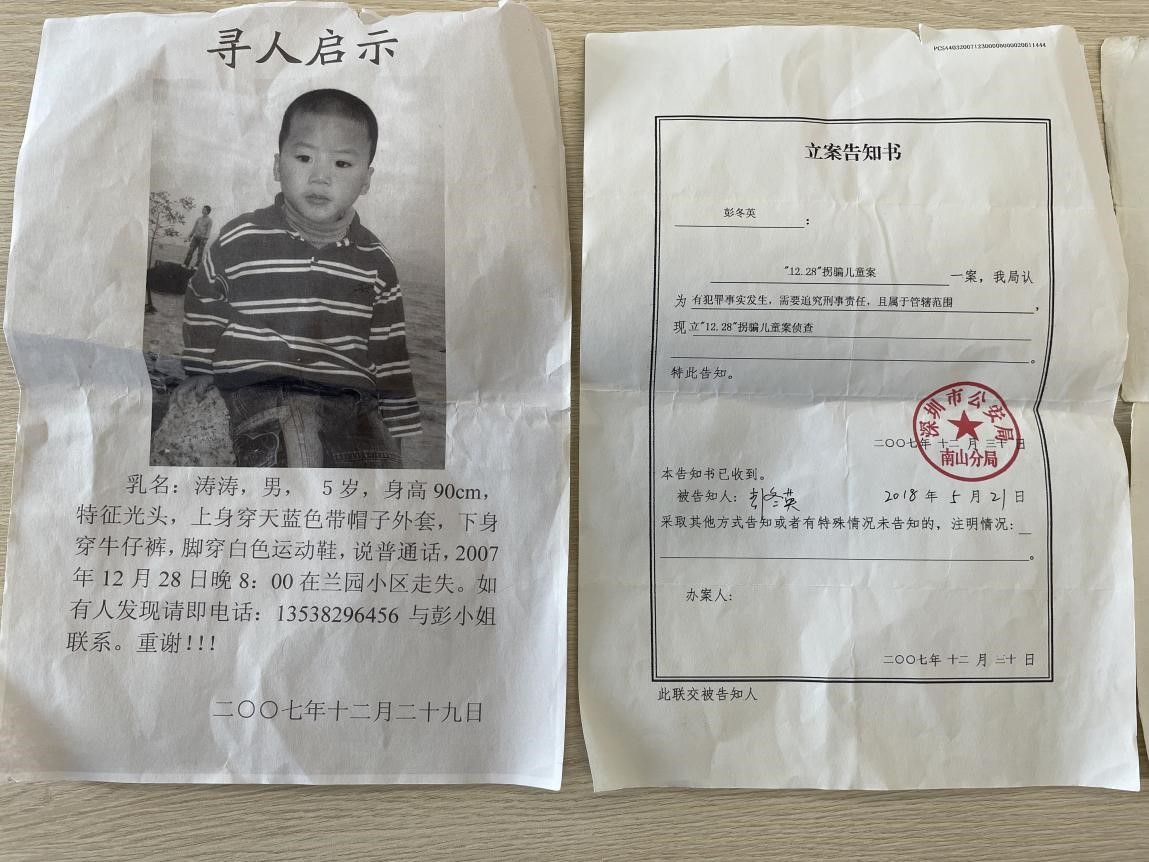 寻人启示
乳名：涛涛，男， 5岁，身高90cm，
特征光头，上身穿天蓝色带帽子外套，下身
穿牛仔裤，脚穿白色运动鞋，说普通话，2007
年12月28日晚8：00在兰园小区走失。如
有人发现请即电话：13538296456与彭小姐
联系。重谢！！！
二〇〇七年十二月二十九日
立案告知书
彭冬英：
"12.28"拐骗儿童案 一案，我局认
为 有犯罪事实发生，需要追究刑事责任，且属于管辖范围，
现立"12.28"拐骗儿童案侦查
。
特此告知。
深圳市公安局
南山分局
二〇〇七年 十二 月 三十 日
本告知书已收到。
被告知人：彭冬英 2018年5月21日
采取其他方式告知或者有特殊情况未告知的，注明情况：
。
办案人：
二〇〇七年 十二 月 三十 日
此联交被告知人